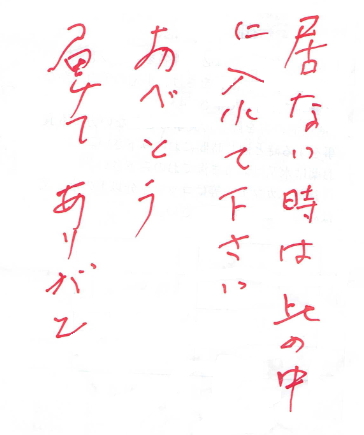 居ない時は此の中
に入れて下さい
おべとう
届けて ありがと